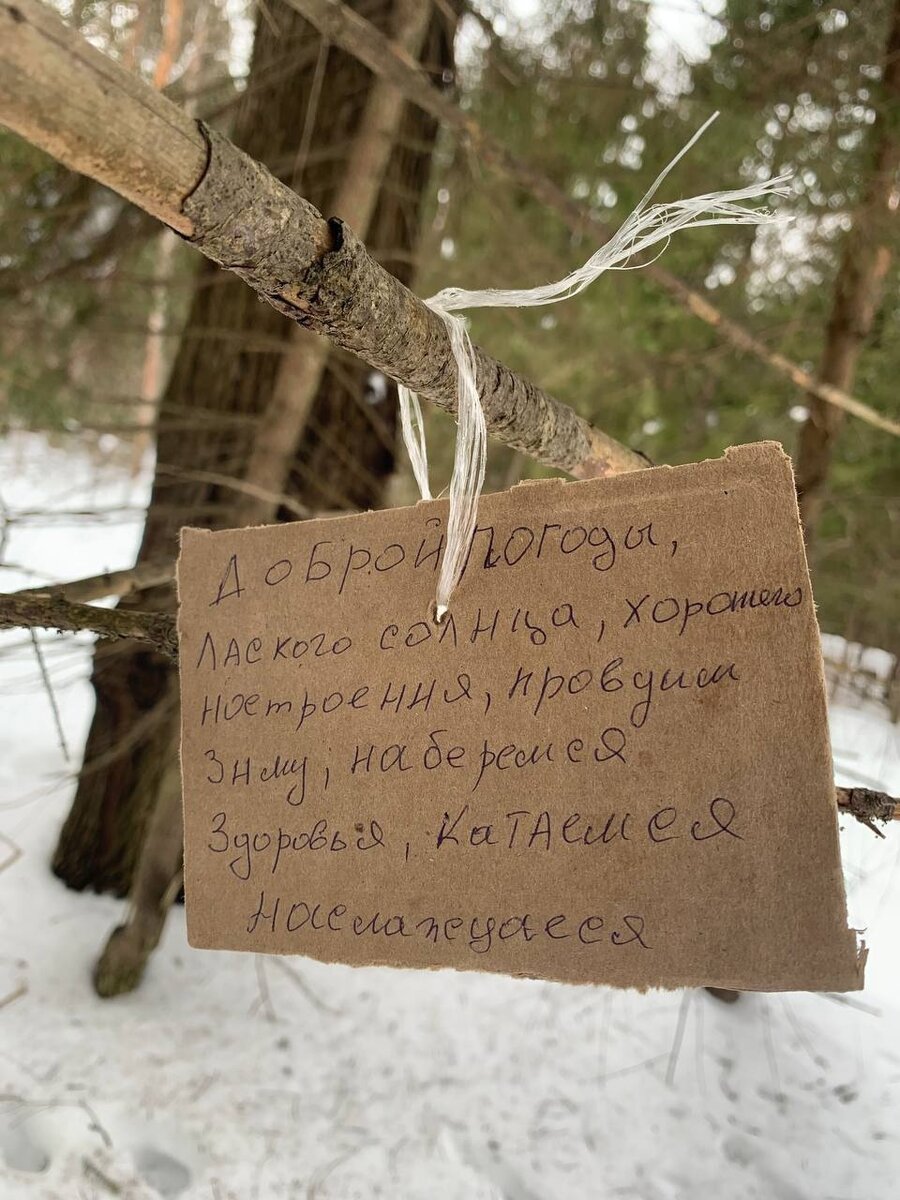 Доброй погоды,
Лаского солнца, хорошего
нострoения, провдим
Зиму, наберемся
Здоровья, катаемся